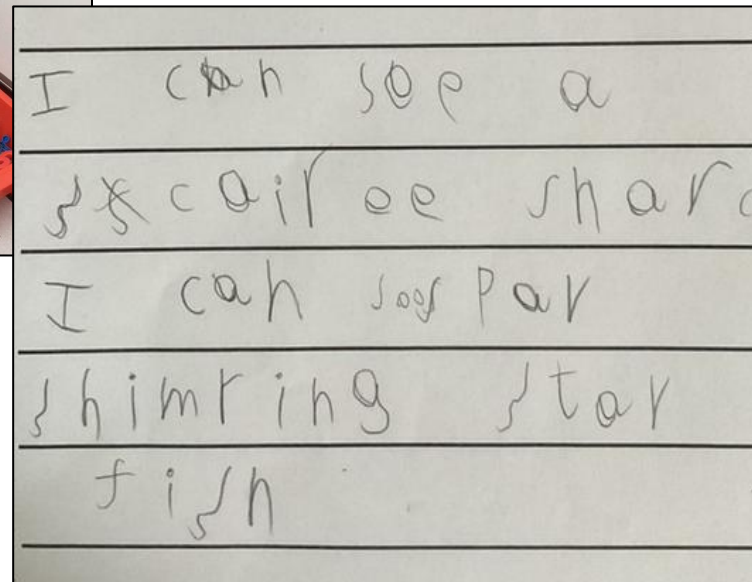 I can see a
scairee sharc
I can
shimring star
fish